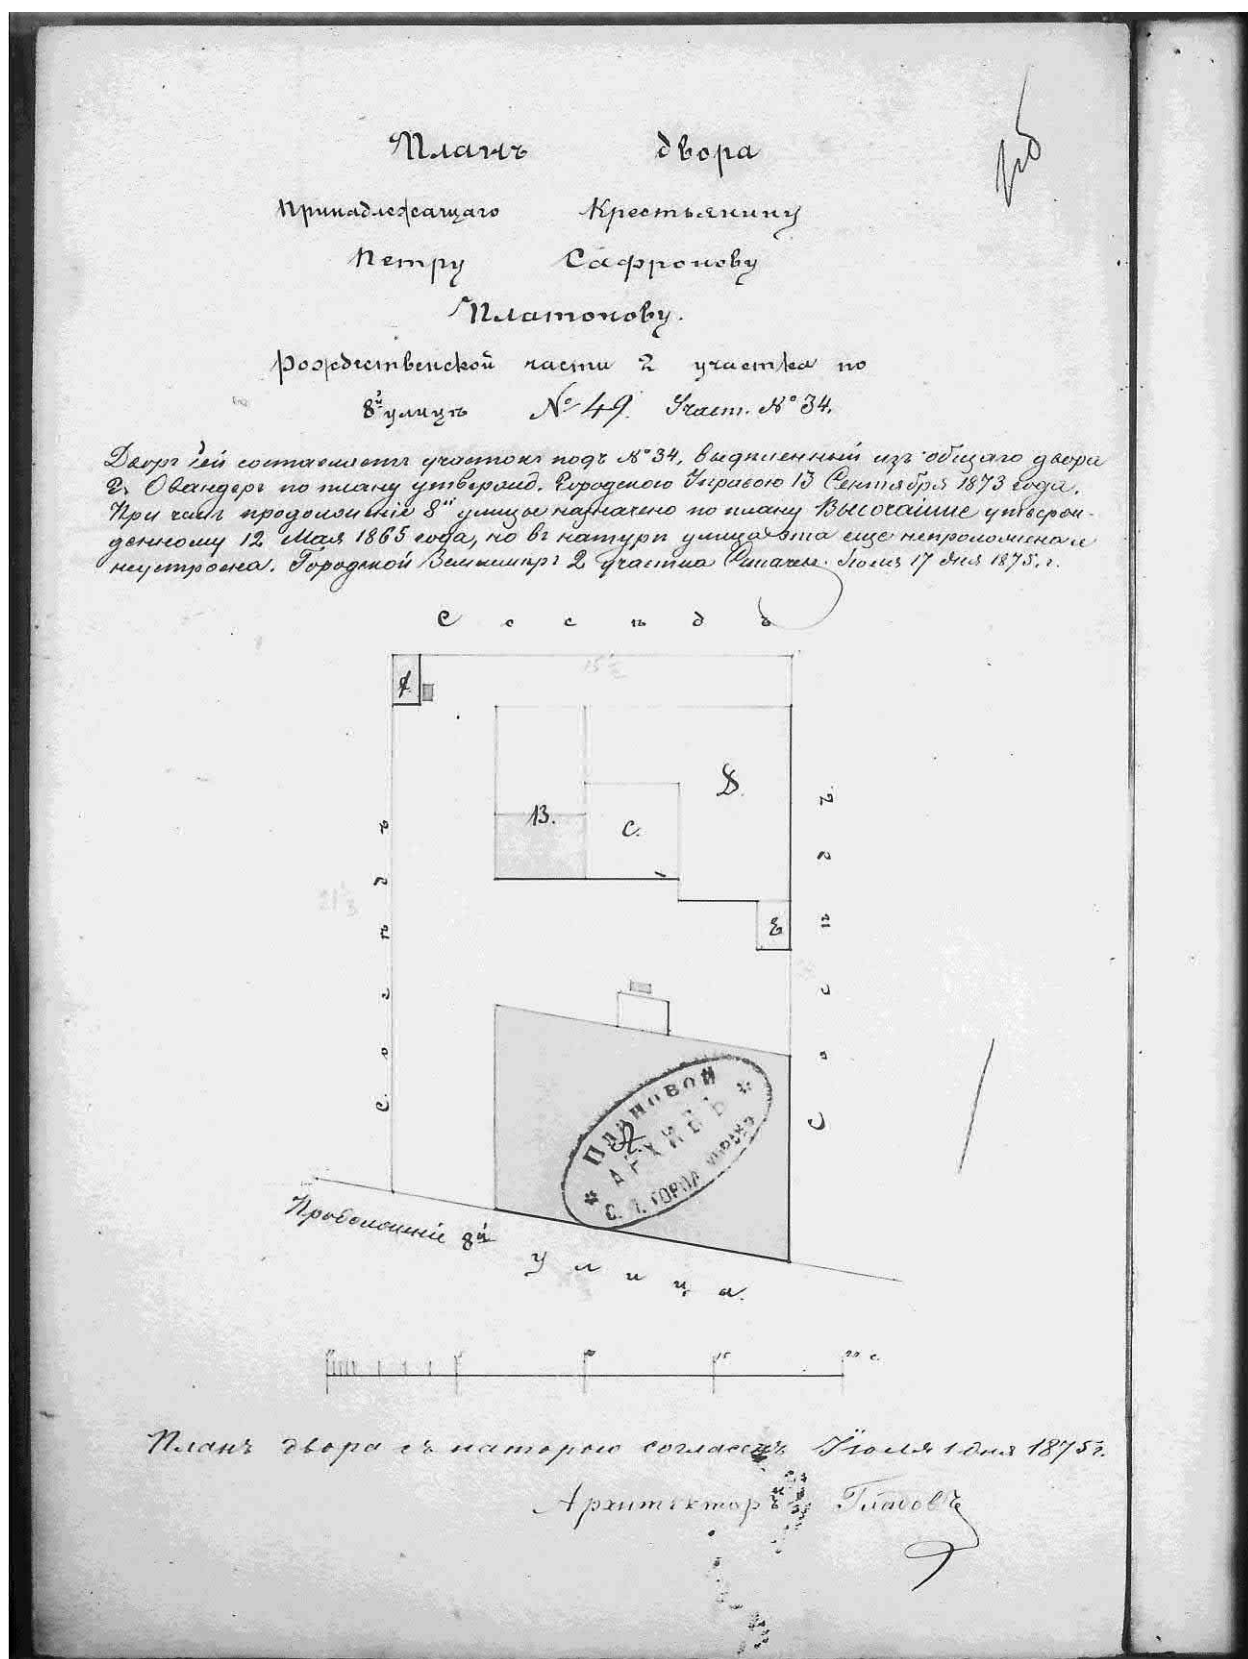 Планъ двора
Принадлежащаго Крестьянину
Петру Сафронову
Платонову.
Рождественской части 2 участка по
8й улицѣ № 49. Участ. № 34.
Дворъ сей составляетъ участокъ подъ № 34, выдѣленный изъ общаго двора
Г. Овандеръ по плану утвержд. Городскою Управою 13 Сентября 1873 года.
При чемъ продолженіе 8й улицы назначено по плану Высочайше утвержденному
12 Мая 1865 года, но въ натурѣ улица эта еще непроложена и
неустроена. Городской Землемѣръ 2 участка Іюля 17 дня 1875. г.
Сосѣдъ
15
A.
B.
C.
D.
E
Сосѣдъ
Сосѣдъ
21
ПЛАНОВОЙ
АРХИВЪ
С. П. ГОРОД. УПРАВЫ
Продолженіе 8й
улица.
5 10 15 20 с.
Планъ двора съ натурою согласенъ Іюля 1 дня 1875 г.
Архитекторъ